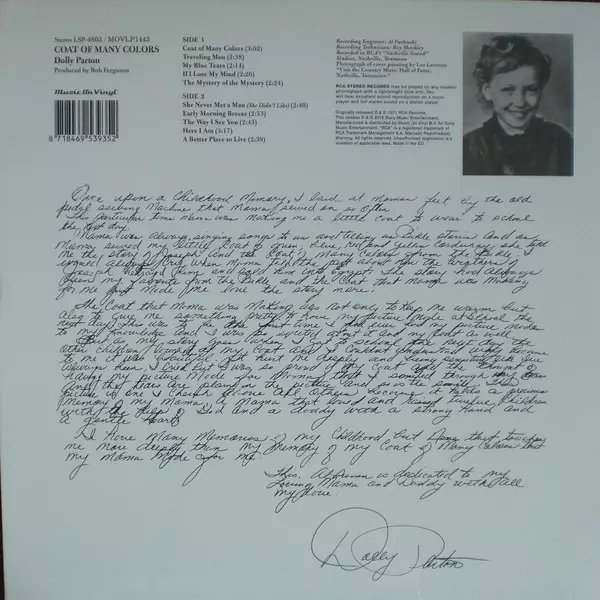 Stereo LSP-4603 / MOVLP1443
COAT OF MANY COLORS
Dolly Parton
Produced by Bob Ferguson
Music On Vinyl
8 718469 539352
SIDE 1
Coat of Many Colors (3:02)
Traveling Man (2:38)
My Blue Tears (2:14)
If I Lose My Mind (2:26)
The Mystery of the Mystery (2:24)
SIDE 2
She Never Met a Man (She Didn't Like) (2:40)
Early Morning Breeze (2:53)
The Way I See You (2:43)
Here I Am (3:17)
A Better Place to Live (2:39)
Recording Engineer: Al Pachucki
Recording Technician: Roy Shockley
Recorded in RCA's "Nashville Sound"
Studios, Nashville, Tennessee
Photograph of cover painting by Les Leverett
"Visit the Country Music Hall of Fame,
Nashville, Tennessee."
RCA STEREO RECORDS may be played on any modern
phonograph with a lightweight tone arm. You
will hear excellent sound reproduction on a mono
player and full stereo sound on a stereo player.
Originally released ℗ & © 1971 RCA Records.
This release ℗ & © 2015 Sony Music Entertainment.
Manufactured & distributed by Music On Vinyl B.V. for Sony
Music Entertainment. "RCA" is a registered trademark of
RCA Trademark Management S.A. Marca(s) Registrada(s).
Warning: All Rights Reserved. Unauthorized duplication is a
violation of applicable laws. Made in the EU.
Once upon a Childhood Memory, I said at Mamas feet by the old
pedal sewing Machine that Mama sewed on so often
This particular time Mama was making me a little coat to wear to school
the next day
Mama was always singing songs to us and telling us Bible stories And as
Mama sewed my little Coat of green, blue, red and yellow Corduroy she told
me the story of Joseph and the Coat of Many Colors from the Bible
I would always cry when Mama told the part about the brothers of
Joseph and sold him into Egypt. The story had always
been my favorite from the Bible and the Coat that Mama was Making
for me just Made me love the story more.
The Coat that Mama was Making was not only to keep me warm but
also to give me something pretty to have my picture Made in the
next day. This was to be the first time I had ever had my picture Made
to my knowledge and I was so excited about it and my coat as well
But as my story goes when I got to school the next day the
other children laughed at my Coat and I couldn't understand why because
to me it was beautiful
I cried But I was so proud of my Coat and the thought of
having my picture Made
And the tears are plain in the picture and so is the smile This
picture is one I cherish above All others because it holds a precious
Memory of my Mama, a Mama that loved and raised twelve Children
with the help of God and a daddy with a strong hand and
a Gentle Heart
I Have Many Memories of my Childhood but none that touches
me more deeply than my Memory of my Coat of Many Colors that
my Mama Made for me
This Album is dedicated to my
Loving Mama and Daddy with all
my love.
Dolly Parton